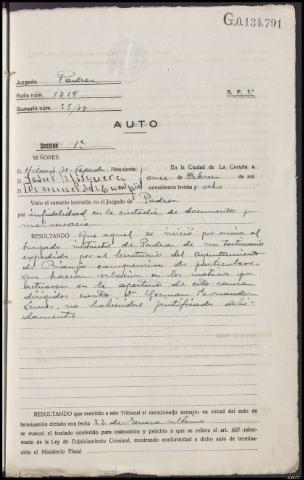 G.0.134.791
Juzgado Padron
Rollo núm. 1219
S. P. 1.ª
Sumario núm. 55/37
AUTO
Sección 1ª
SEÑORES:
D. Presidente
En la Ciudad de La Coruña a
D. Jesús
once de Febrero de mil
D. Manuel
novecientos treinta y ocho
Visto el sumario instruido en el Juzgado de Padron
por infidelidad en la custodia de documentos y
malversación
RESULTANDO Que aquel se inició por envio al
Juzgado instructor de Padron de un testimonio
expedido por el Secretario del Ayuntamiento
de Rianjo comprensivo de particulares
que hacian relación en los motivos que
la apertura de esta causa
dirigidos contra D. German Fernandez
no habiendose justificado debi-
damente
RESULTANDO que remitido a este Tribunal el mencionado sumario en virtud del auto de
terminación dictado con fecha 22 de Enero ultimo
se evacuó el traslado conferido para instrucción y petición a que se refiere el art. 627 refor-
mado de la Ley de Enjuiciamiento Criminal, mostrando conformidad a dicho auto de termina-
ción el Ministerio Fiscal